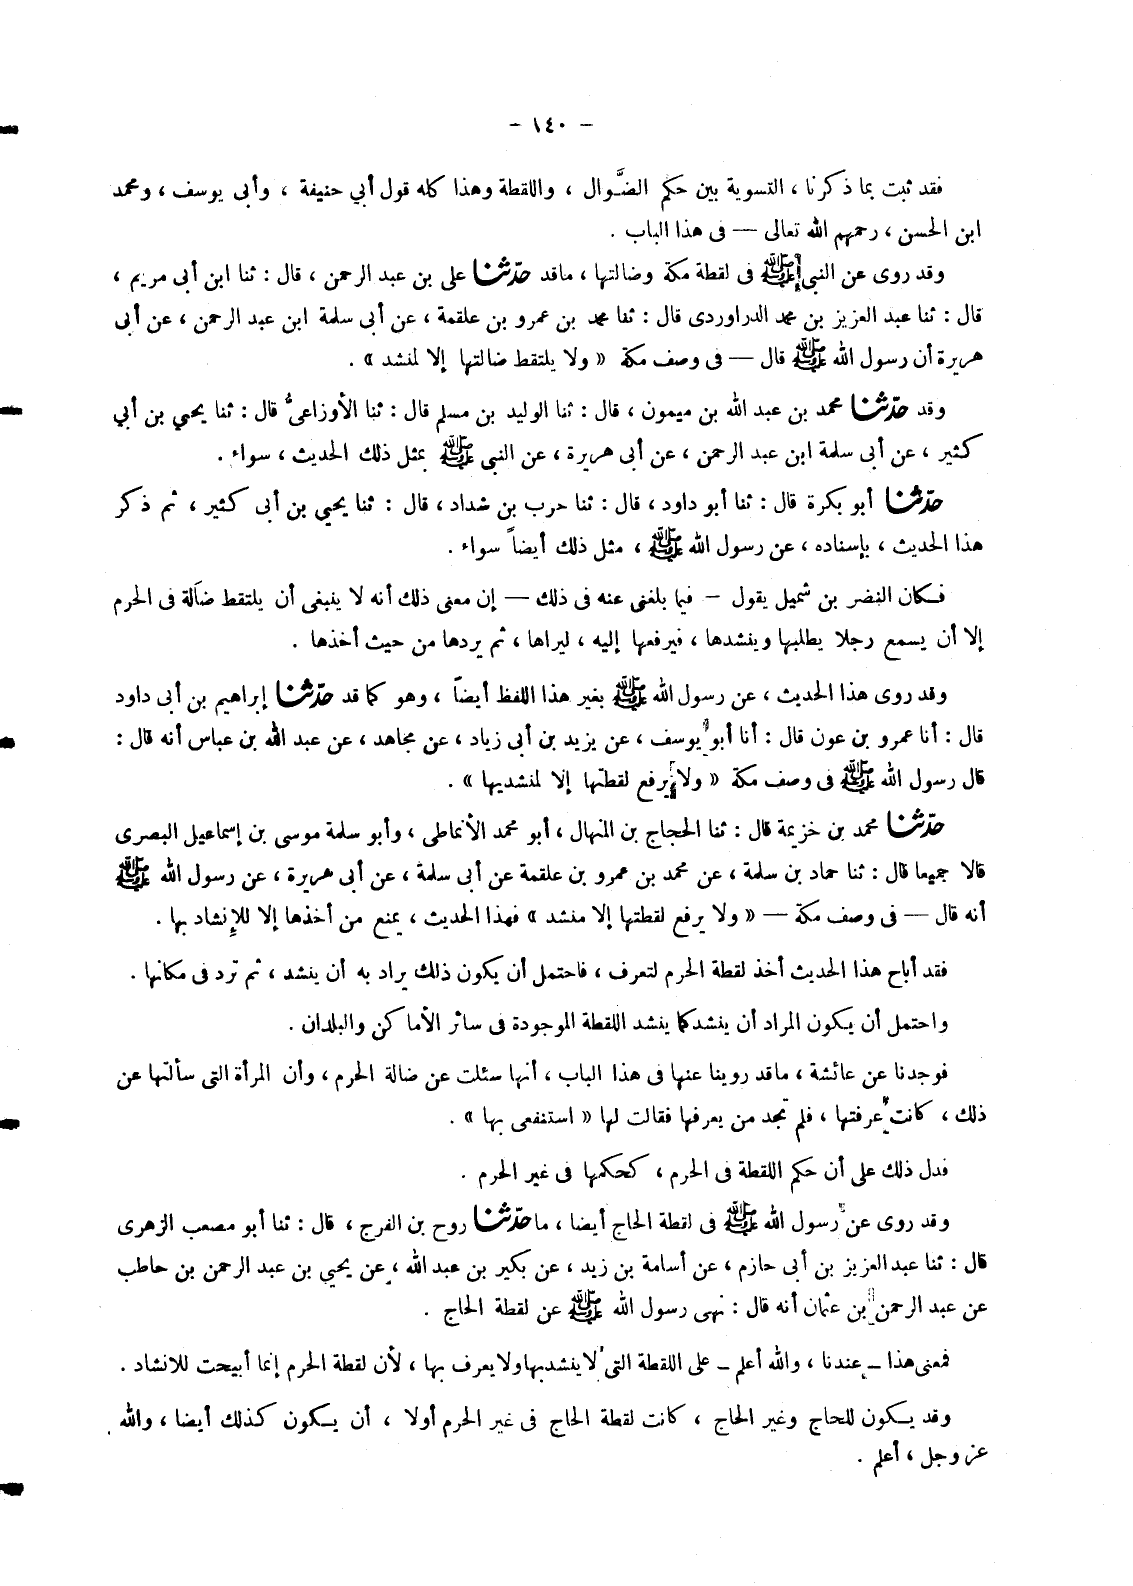 – ١٤٠ –
فقد ثبت بما ذكرنا ، التسوية بين حكم الضَّوال ، واللقطة وهذا كله قول أبي حنيفة ، وأبى يوسف ، ومحمد
ابن الحسن ، رحمهم الله تعالى — فى هذا الباب .
وقد روى عن النبي ﷺ فى لقطة مكة وضالتها ، ماقد حدّثنا على بن عبد الرحمن ، قال : ثنا ابن أبى مريم ،
قال : ثنا عبد العزيز بن محمد الدراوردى قال : ثنا محمد بن عمرو بن علقمة ، عن أبى سلمة ابن عبد الرحمن ، عن أبى
هريرة أن رسول الله ﷺ قال — فى وصف مكة « ولا يلتقط ضالتها إلا لمنشد » .
وقد حدّثنا محمد بن عبد الله بن ميمون ، قال : ثنا الوليد بن مسلم قال : ثنا الأوزاعىُّ قال : ثنا يحيى بن أبي
كثير ، عن أبى سلمة ابن عبد الرحمن ، عن أبى هريرة ، عن النبى ﷺ بمثل ذلك الحديث ، سواء .
حدّثنا أبو بكرة قال : ثنا أبو داود ، قال : ثنا حرب بن شداد ، قال : ثنا يحيي بن أبى كثير ، ثم ذكر
هذا الحديث ، بإسناده ، عن رسول الله ﷺ ، مثل ذلك أيضاً سواء .
فكان النضر بن شميل يقول – فيما بلغنى عنه فى ذلك — إن معنى ذلك أنه لا ينبغى أن يلتقط ضآلة فى الحرم
إلا أن يسمع رجلا يطلبها وينشدها ، فيرفعها إليه ، ليراها ، ثم يردها من حيث أخذها .
وقد روى هذا الحديث ، عن رسول الله ﷺ بغير هذا اللفظ أيضاً ، وهو كما قد حدّثنا إبراهيم بن أبى داود
قال : أنا عمرو بن عون قال : أنا أبو يوسف ، عن يزيد بن أبى زياد ، عن مجاهد ، عن عبد الله بن عباس أنه قال :
قال رسول الله ﷺ فى وصف مكة « ولا يرفع لقطتها إلا لمنشديها » .
حدّثنا محمد بن خزيمة قال : ثنا الحجاج بن المنهال ، أبو محمد الأنماطى ، وأبو سلمة موسى بن إسماعيل البصرى
قالا جميعا قال : ثنا حماد بن سلمة ، عن محمد بن عمرو بن علقمة عن أبى سلمة ، عن أبى هريرة ، عن رسول الله ﷺ
أنه قال — فى وصف مكة — « ولا يرفع لقطتها إلا منشد » فهذا الحديث ، يمنع من أخذها إلا للإنشاد بها .
فقد أباح هذا الحديث أخذ لقطة الحرم لتعرف ، فاحتمل أن يكون ذلك يراد به أن ينشد ، ثم ترد فى مكانها .
واحتمل أن يكون المراد أن ينشدكما ينشد اللقطة الموجودة فى سائر الأماكن والبلدان .
فوجدنا عن عائشة ، ماقد روينا عنها فى هذا الباب ، أنها سئلت عن ضالة الحرم ، وأن المرأة التى سألتها عن
ذلك ، كانت عرفتها ، فلم تجد من يعرفها فقالت لها « استنفعى بها » .
فدل ذلك على أن حكم اللقطة فى الحرم ، كحكمها فى غير الحرم .
وقد روى عن رسول الله ﷺ فى لقطة الحاج أيضا ، ماحدّثنا روح بن الفرج ، قال : ثنا أبو مصعب الزهرى
قال : ثنا عبدالعزيز بن أبى حازم ، عن أسامة بن زيد ، عن بكير بن عبد الله ، عن يحيي بن عبد الرحمن بن حاطب
عن عبد الرحمن بن عثمان أنه قال : نهى رسول الله ﷺ عن لقطة الحاج .
فمعنى هذا – عندنا ، والله أعلم – على اللقطة التى لاينشدبها ولا يعرف بها ، لأن لقطة الحرم إنما أبيحت للانشاد .
وقد يكون للحاج وغير الحاج ، كانت لقطة الحاج فى غير الحرم أولا ، أن يكون كذلك أيضا ، والله
عز وجل ، أعلم .